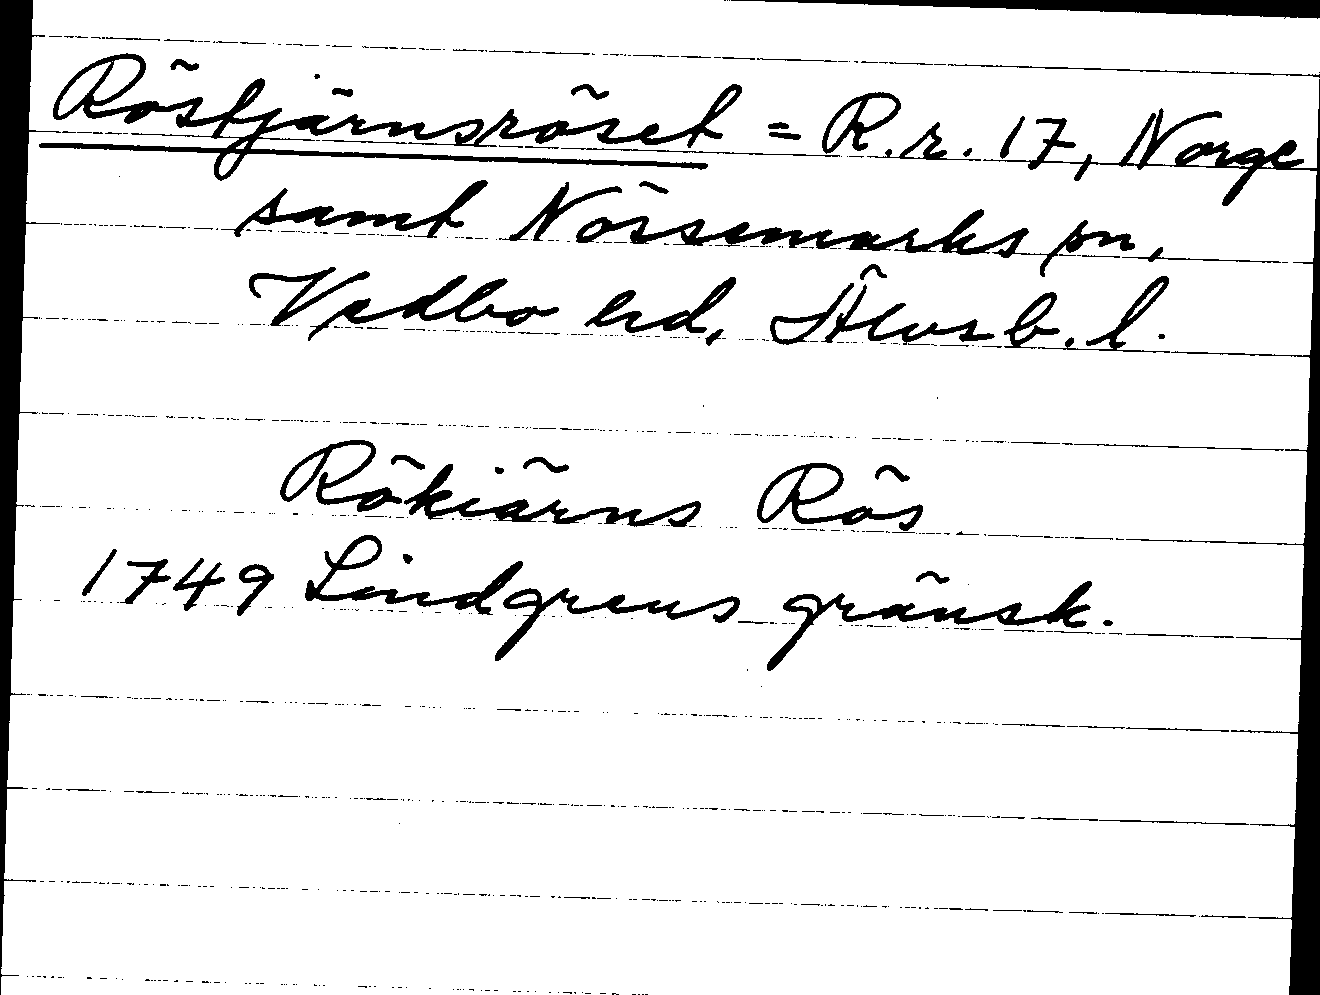 Röstjärnsröset = R.r. 17, Norge
samt Nössemarks sn,
Vedbo hd, Älvsb. l.
Rökiärns Rös
1749 Lindgrens gränsk.